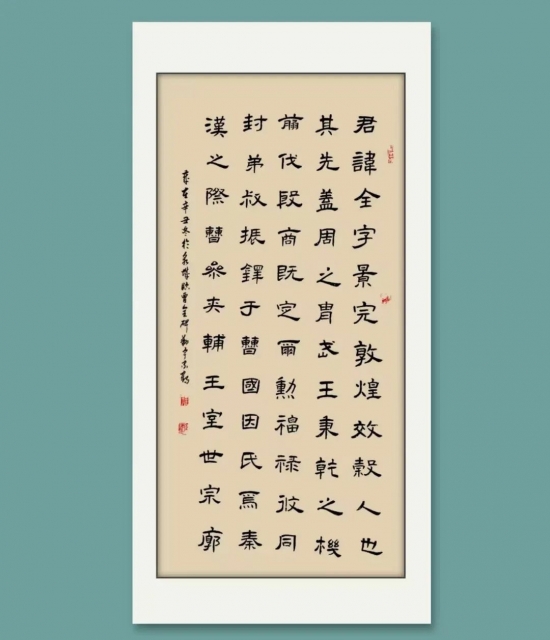 君諱全字景完敦煌效穀人也
其先蓋周之胄武王秉乾之機
翦伐殷商既定爾勳福祿攸同
封弟叔振鐸于曹國因氏焉秦
漢之際曹參夾輔王室世宗廓
歲在辛丑冬於臨曹全碑